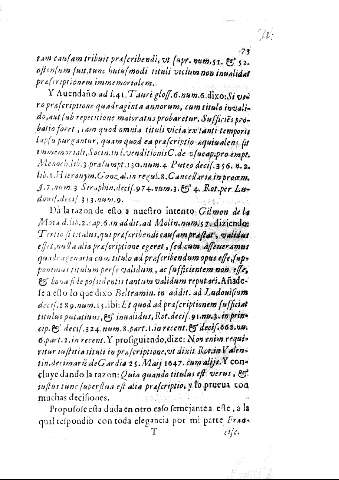 73
tam causam tribuit præscribendi, vt supr. num. 51. & 52.
ostensum fuit, tunc huiusmodi tituli vitium non inualidat
præscriptionem immemorialem.
Y Auendaño ad l. 41. Tauri gloss. 6. num. 6. dixo: Si verò
præscriptione quadraginta annorum, cum titulo inuali-
do, aut sub repetitione maioratus probaretur. Sufficiēs pro-
batio foret, nam quod omnia titulivicia ex tanti temporis
lapsu purgantur, quam quod ea præscriptio æquiualens sit
immemoriali, Socin. in l. venditionis C. de vsucap. pro empt.
Menoch. lib. 3. præsumpt. 130. num. 4. Puteo decis. 356. n. 2.
lib. 2. Hieronym. Gonzal. in regul. 8. Cancellaria in proœm.
§. 7. num. 3. Seraphin. decis. 974. num. 3. & 4. Rot. per Lu-
douis. decis. 313. num. 9.
Dà la razon de esto a nuestro intento Gilmon de la
Mota d. lib. 2. cap. 6. in addit. ad Molin. num. 57. diziendo:
Tertio si titulus, quæ præscribendi causam præstat, validus
esset, nulla alia præscriptione egeret, sed cum asseueramus
quadragenaria cum titulo ad præscribendum opus esse, sup-
ponitur titulum per se validum, ac sufficientem non esse,
& bona fide possidentis tantum validum reputari. Añade-
se a esto lo que dixo Beltramin. in addit. ad Ludouisum
decis. 289. num. 25. ibi: Et quod ad præscriptionem sufficiat
titulus putatiuus, & inualidus, Rot. decis. 91. nu. 3. in prin-
cip. & decis. 324. num. 8. part. 1. in recent. & decis. 668. nu.
6. part. 2. in recent. Y prosiguiendo, dize: Non enim requi-
ritur iustitia tituli in præscriptione, vt dixit Rot. in Valen-
tin. decimarū de Gardia 25. Maij 1647. cum alijs. Y con-
cluye dando la razon: Quia quando titulus est verus, &
iustus tunc superflua est alia præscriptio, y lo prueua con
muchas decisiones.
Propusose esta duda en otro caso semejante a este, a la
qual respondio con toda elegancia por mi parte Fran-
T
cisc.